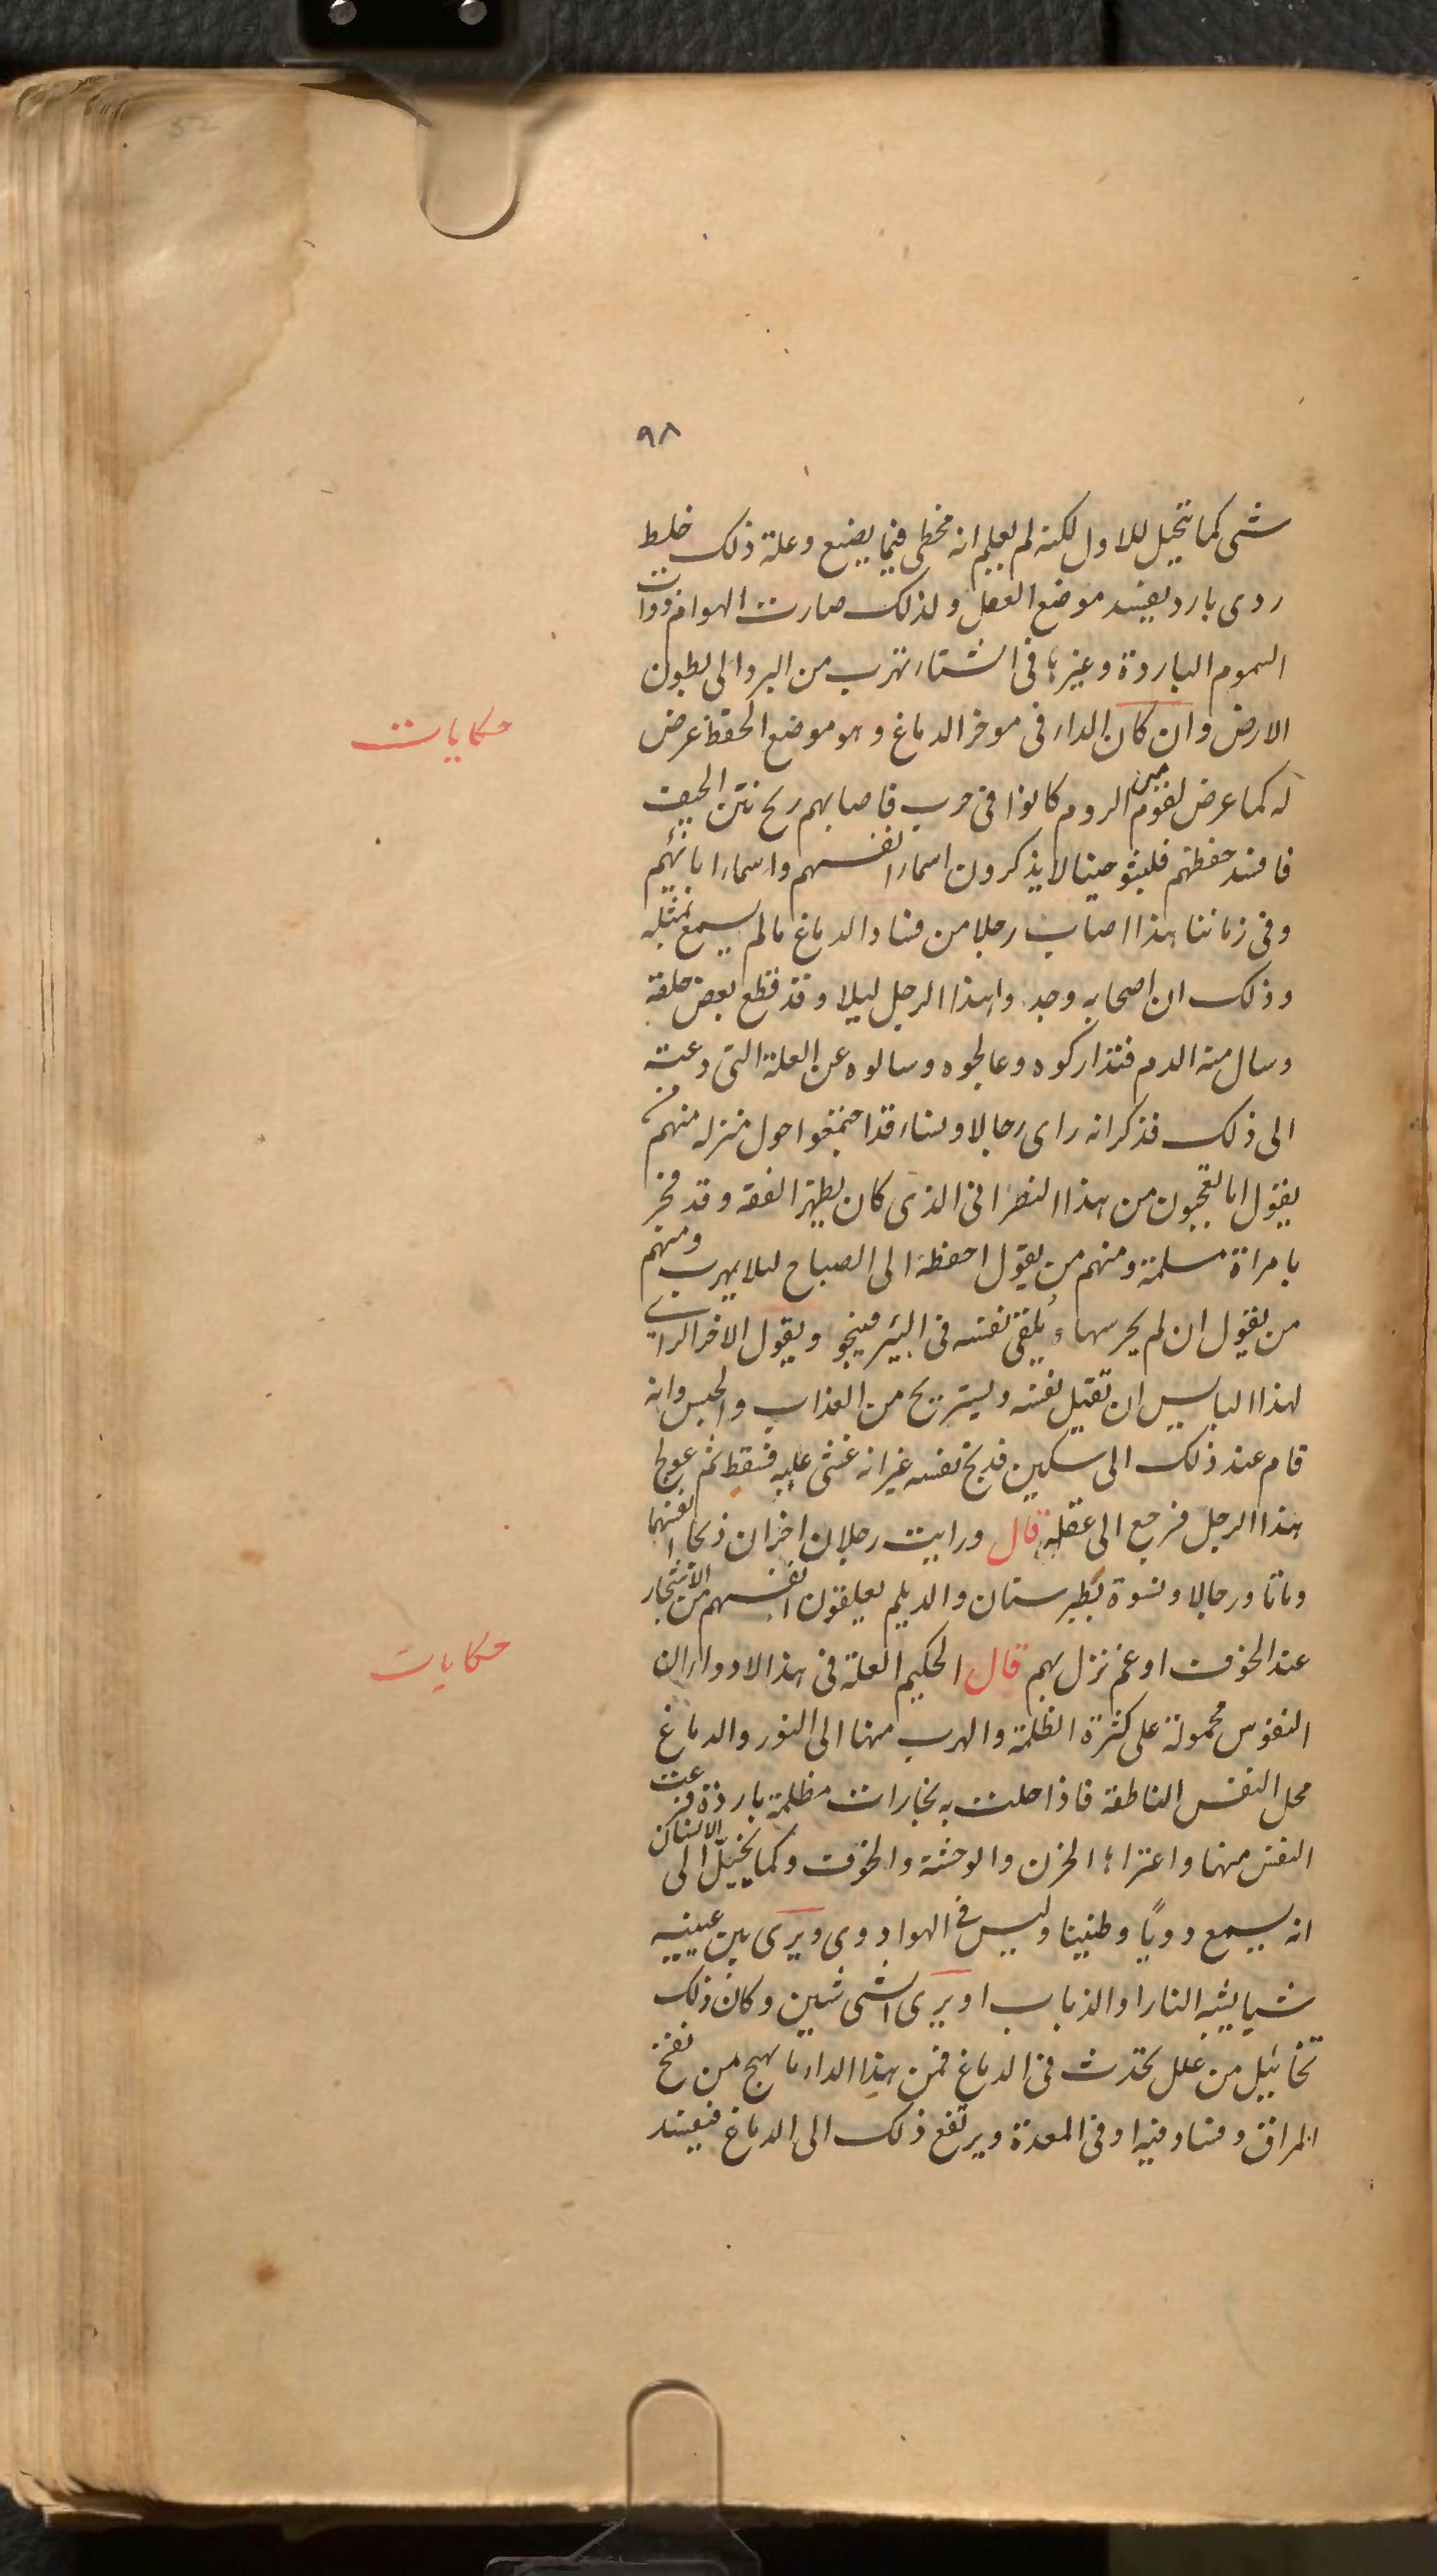 ٩٨
شى كما تخيل للاول لكنه لم يعلم انه مخطى فيما يصنع وعلة ذلك خلط
ردى بارد يفسد موضع العقل ولذلك صارت الهوام ذوات
السموم الباردة وغيرها فى الشتاء تهرب من البرد الى بطون
الارض وان كان الداء فى موخر الدماغ وهو موضع الحفظ عرض
حكايات
له كما عرض لقوم من الروم كانوا فى حرب فاصابهم ريح نتن الجيف
فافسد حفظهم فلبثو حينا لا يذكرون اسماء انفسهم واسماء ابائهم
وفى زماننا هذا اصاب رجلا من فساد الدماغ مالم يسمع بمثله
وذلك ان اصحابه وجدوا هذا الرجل ليلا وقد قطع بعض حلقه
وسال منه الدم فتداركوه وعالجوه وسالوه عن العلة التى دعته
الى ذلك فذكر انه راى رجالا ونساء قد اجتمعوا حول منزله منهم من
يقول اما تعجبون من هذا النصرانى الذى كان يظهر الفقه وقد فجر
بامراة مسلمة ومنهم من يقول احفظه الى الصباح ليلا يهرب ومنهم
من يقول ان لم يحرسها ويلقى نفسه فى البئر فينجو ويقول الاخر الراى
لهذا البايس ان تقتيل نفسه ويستريح من العذاب والحبس وانه
قام عند ذلك الى سكين فذبح نفسه غير انه غشى عليه فسقط ثم عولج
هذا الرجل فرجع الى عقله قال ورايت رجلان اخران ذبحا انفسهما
وماتا ورجالا ونسوة بطبرستان والديلم يعلقون انفسهم من الاشجار
عند الخوف او غم نزل بهم قال الحكيم العلة فى هذا الادواء ان
حكايات
النفوس محمولة على كثرة الظلمة والهرب منها الى النور والدماغ
محل النفس الناطقة فاذا حلت به بخارات مظلمة باردة فزعت
النفس منها واعتراها الحزن والوحشة والخوف وكما يخيّل الى الانسان
انه يسمع دويّا وطنينا وليس فى الهوا دوى ويرى بين عينيه
شيا يشبه النار او الذباب او يرى الشى شيين وكان ذلك
تخاييل من علل تحدث فى الدماغ فمن هذا الداء ما يهيج من نفخ
المراق وفساد فيه او فى المعدة ويرتفع ذلك الى الدماغ فيفسد